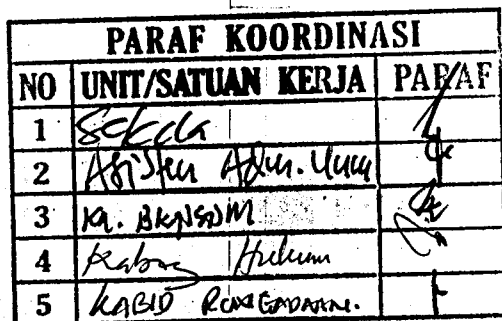 PARAF KOORDINASI
NO UNIT/SATUAN KERJA PARAF
1 Sekda
2 Asisten Adm. Umum
3 Ka. BKPSDM
4 Kabag Hukum
5 KABID PENGADAAN.